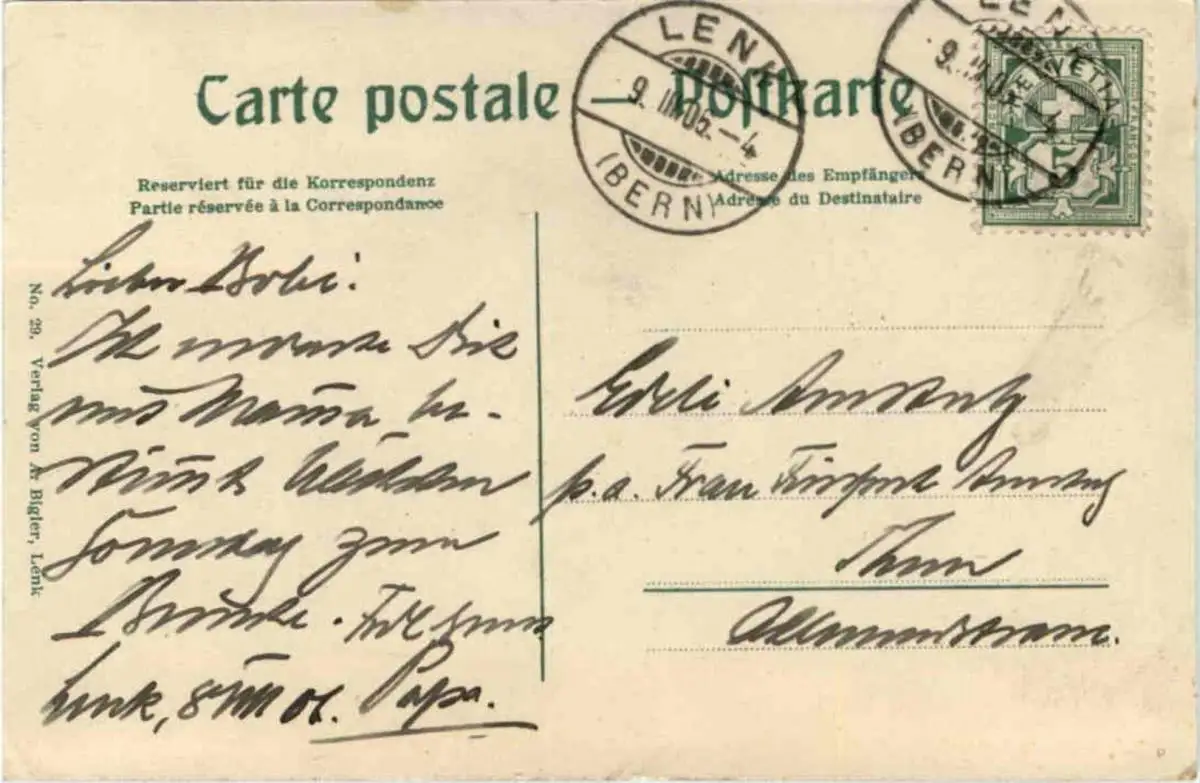 Carte postale — Postkarte
Reserviert für die Korrespondenz
Partie réservée à la Correspondance
Adresse des Empfängers
Adresse du Destinataire
LENK
9. III. 05. – 4
(BERN)
LENK
9. III. 05. – 4
(BERN)
HELVETIA
5
No. 29. Verlag von A. Bigler, Lenk
Lieber Bobi!
Ich erwarte Dich
und Mama be-
stimmt nächsten
Sonntag zum
Besuche.
Lenk, Papa.
p.a. Frau Amstutz
Thun